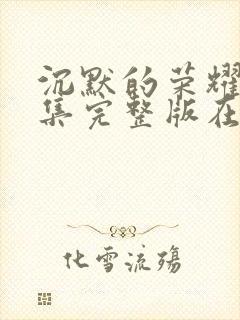 沉默的荣耀
集完整版在
化雪流殇